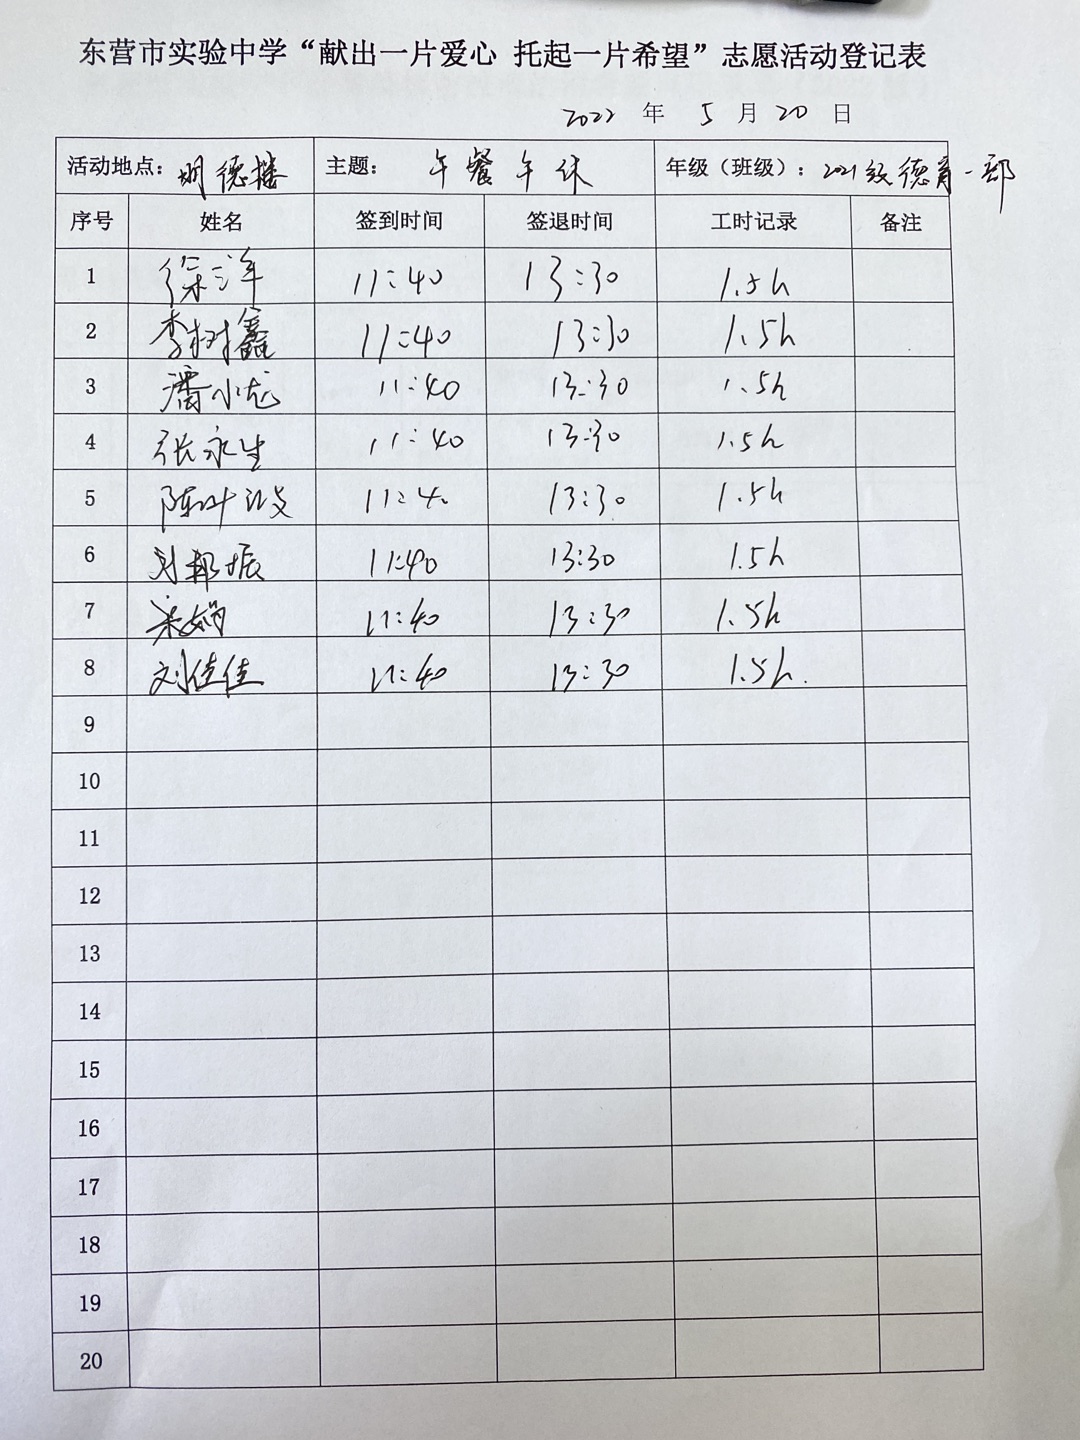 东营市实验中学“献出一片爱心 托起一片希望”志愿活动登记表
2022 年 5 月 20 日
活动地点：明德楼 主题： 午餐午休 年级（班级）：2021级德育一部
序号 姓名 签到时间 签退时间 工时记录 备注
1 徐洋 11:40 13:30 1.5h
2 李树鑫 11:40 13:30 1.5h
3 潘小龙 11:40 13:30 1.5h
4 张永生 11:40 13:30 1.5h
5 陈叶 11:40 13:30 1.5h
6 刘振 11:40 13:30 1.5h
7 宋娟 11:40 13:30 1.5h
8 刘佳佳 11:40 13:30 1.5h.
9
10
11
12
13
14
15
16
17
18
19
20